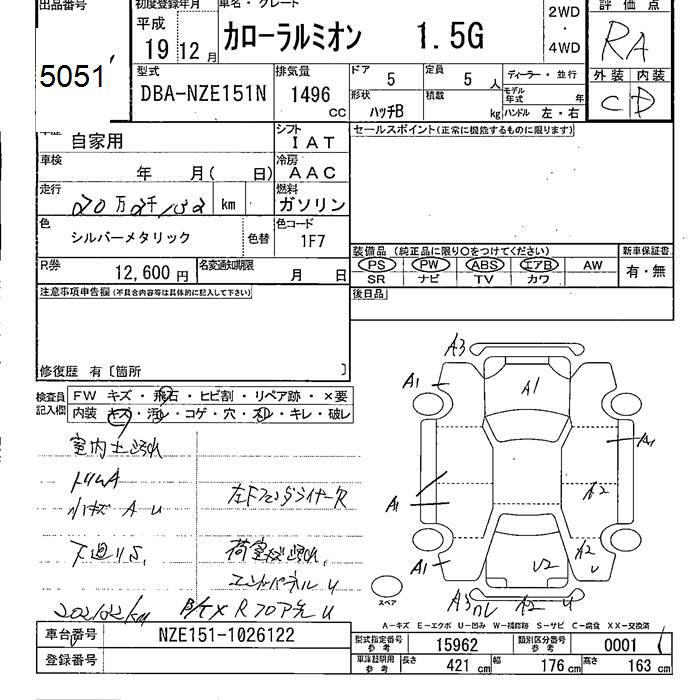 出品番号 初度登録年月 車名・グレード 評価点
平成 19 12月 カローラルミオン 1.5G 2WD・4WD RA
外装 内装
C D
5051
型式 排気量 ドア 5 定員 5人 ディーラー・並行
DBA-NZE151N 1496cc 形状 ハッチB 積載 kg モデル年式 年
ハンドル 左・右
車歴 自家用 シフト IAT セールスポイント(正常に機能するものに限ります)
車検 年 月( 日) 冷房 AAC
走行 20万2千132 km 燃料 ガソリン
色 シルバーメタリック 色替 色コード 1F7
装備品(純正品に限り○をつけてください) 新車保証書
R券 12,600円 名変通知期限 月 日 PS PW ABS エアB AW 有・無
SR ナビ TV カワ
注意事項申告欄(不具合内容等は具体的に記入して下さい) 後日品
修復歴 有〔箇所 〕
検査員記入欄 FW キズ・飛石・ヒビ割・リペア跡・×要
内装 キズ・汚レ・コゲ・穴・スレ・キレ・破レ
A3
A1 A1
A1
A1 A2
A1 A2 U
U2
A2 U
室内土汚れ
トリムA
小キズ A U 左Fフェンダライナー欠
下廻りS. 荷室キズ汚れ.
エンドパネルU
202132km Rフロア先U
スペア
A－キズ E－エクボ U－凹み W－補修跡 S－サビ C－腐食 XX－交換済
車台番号 NZE151-1026122 型式指定番号 参考 15962 類別区分番号 参考 0001
登録番号 車庫証明用 参考 長さ 421cm 幅 176cm 高さ 163cm